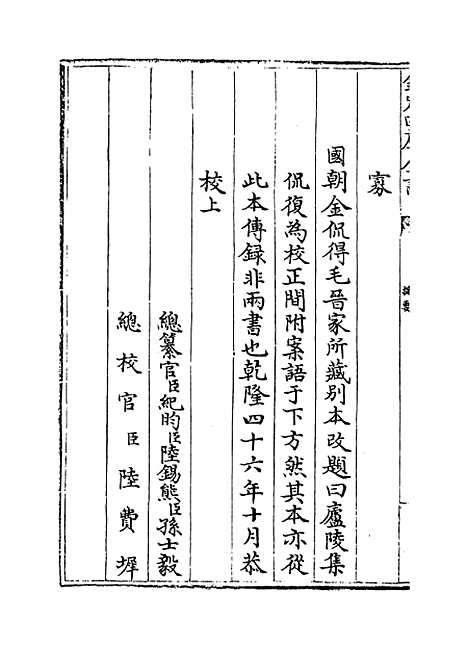 寡
國朝金侃得毛晉家所藏别本改題曰廬陵集
侃復為校正間附案語于下方然其本亦從
此本傳録非兩書也乾隆四十六年十月恭
校上
總纂官臣紀昀臣陸錫熊臣孫士毅
總校官臣陸費墀